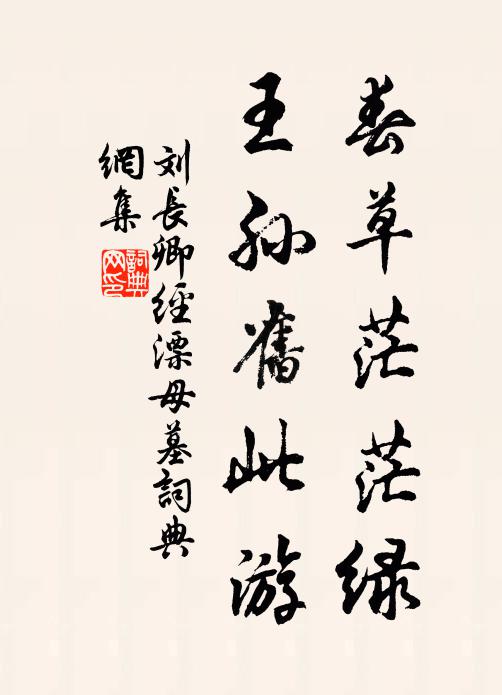 春草茫茫绿
王孙舊此游
刘長卿經漂母墓詞典
網集
詞典网印